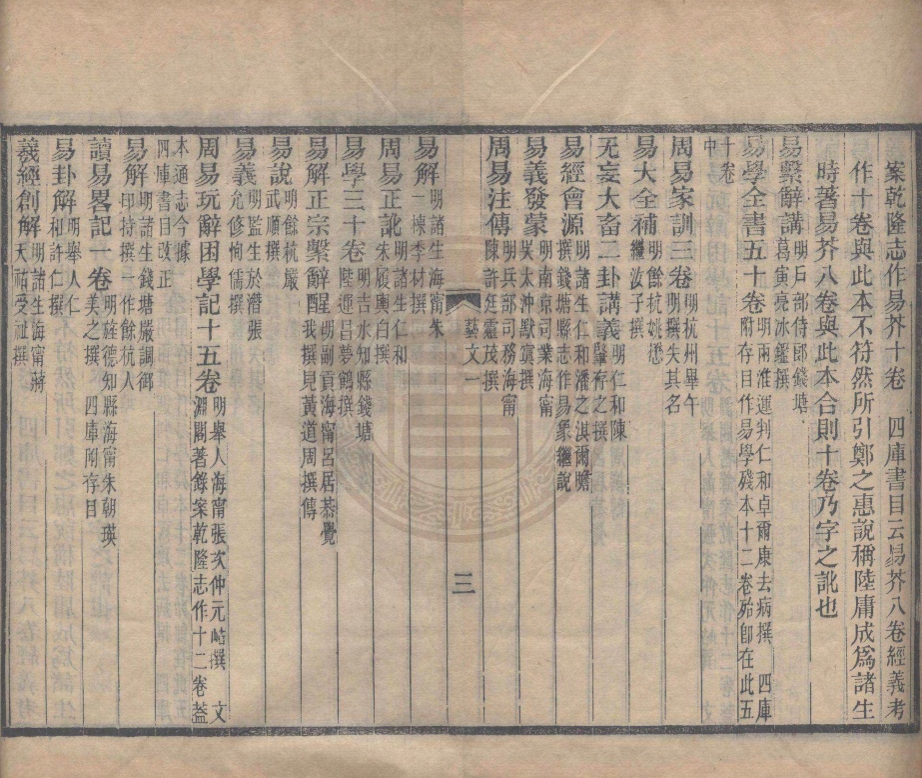 案乾隆志作易芥十卷　四庫書目云易芥八卷經義考
作十卷與此本不符然所引鄭之惠說稱陸庸成爲諸生
時著易芥八卷與此本合則十卷乃字之訛也
易繫辭講明戶部侍郎錢塘葛寅亮冰鑑撰
易學全書五十卷明兩淮運判仁和卓爾康去病撰　四庫附存目作易學殘本十二卷殆卽在此五
十卷中
周易家訓三卷明杭州舉午明撰失其名
易大全補明餘杭姚懋繼汝子撰
无妄大畜二卦講義明仁和陳肇存之撰
易經會源明諸生仁和潘之淇爾瞻撰錢塘縣志作易象繼說
易義發蒙明南京司業海甯吳太沖默寘撰
周易注傳明兵部司務海甯陳許廷靈茂撰
藝文一
三
易解明諸生海甯朱一楝李材撰
周易正訛明諸生仁和朱履輿白撰
易學三十卷明吉水知縣錢塘陸運昌夢鶴撰
易解正宗繫辭醒明副貢海甯呂居恭覺我撰見黃道周撰傳
易說明餘杭嚴武順撰
易義明監生於潛張允修恂儒撰
周易玩辭困學記十五卷明舉人海甯張次仲元岵撰　文淵閣著錄案乾隆志作十二卷蓋
本通志今據四庫書目改正
易解明諸生錢塘嚴調御印持撰一作餘杭人
讀易畧記一卷明旌德知縣海甯朱朝瑛美之撰　四庫附存目
易卦解明舉人仁和許仁撰
羲經創解明諸生海甯蔣天祐受祉撰